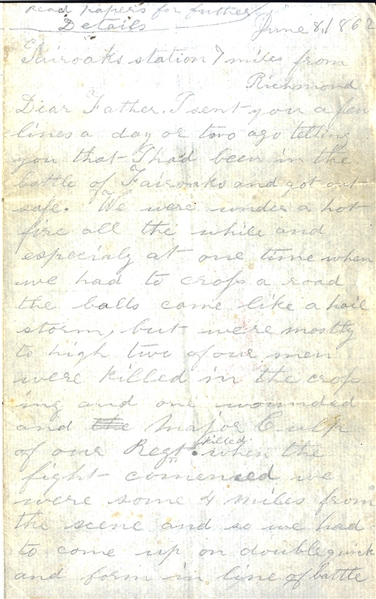 read papers for further
Details June 8, 1862
Fairoaks station 7 miles from
Richmond
Dear Father. I sent you a few
lines a day or two ago telling
you that I had been in the
battle of Fairoaks and got out
safe. We were under a hot
fire all the while and
especialy at one time when
we had to cross a road
the balls came like a hail
storm, but were mostly
to high two of our men
were killed in the cross
ing and one wounded
and the Major Culp
of our Regt. killed when the
fight comenced we
were some 4 miles from
the scene and so we had
to come up on double quick
and form in line of battle